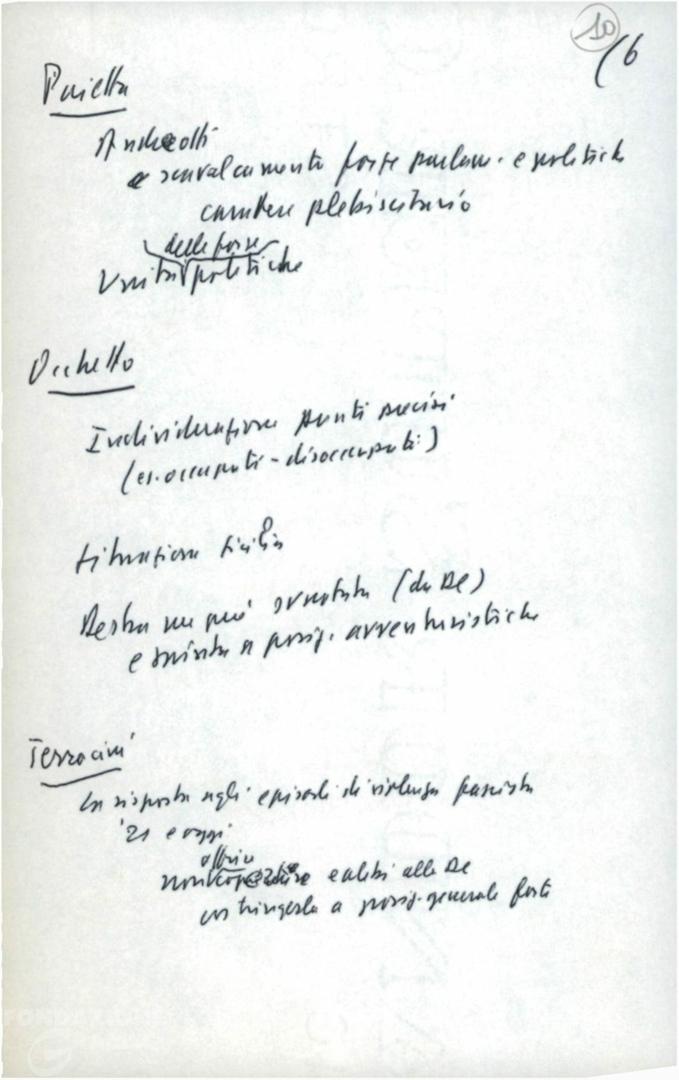 10
(6
Pajetta
Andreotti
e scavalcamento forze parlam. e politiche
carattere plebiscitario
delle forze
Unità politiche
Occhetto
Individuazione punti precisi
(es. occupati - disoccupati)
Situazione Sicilia
Destra un po' svuotata (da DC)
e spinta a posiz. avventuristiche
Terracini
La risposta agli episodi di violenza fascista
'21 e oggi
offrire
non e alibi alla DC
costringerla a posiz. generale forte
FONDAZIONE